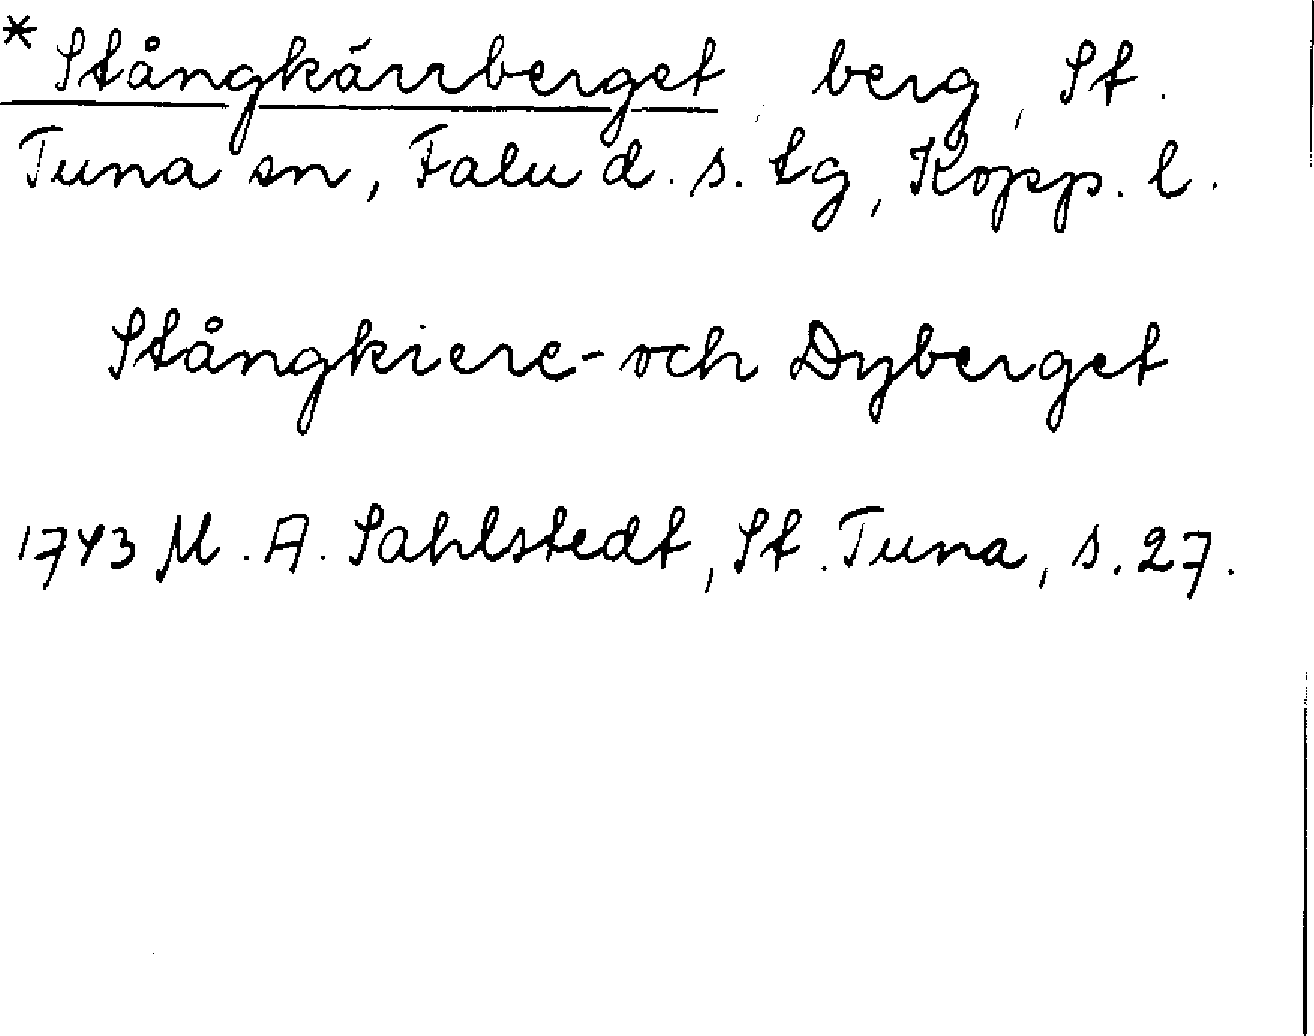 *Stångkärrberget, berg, St.
Tuna sn, Falu d. s. tg, Kopp. l.
Stångkiere- och Dyberget
1743 M. A. Sahlstedt, St. Tuna, s. 27.